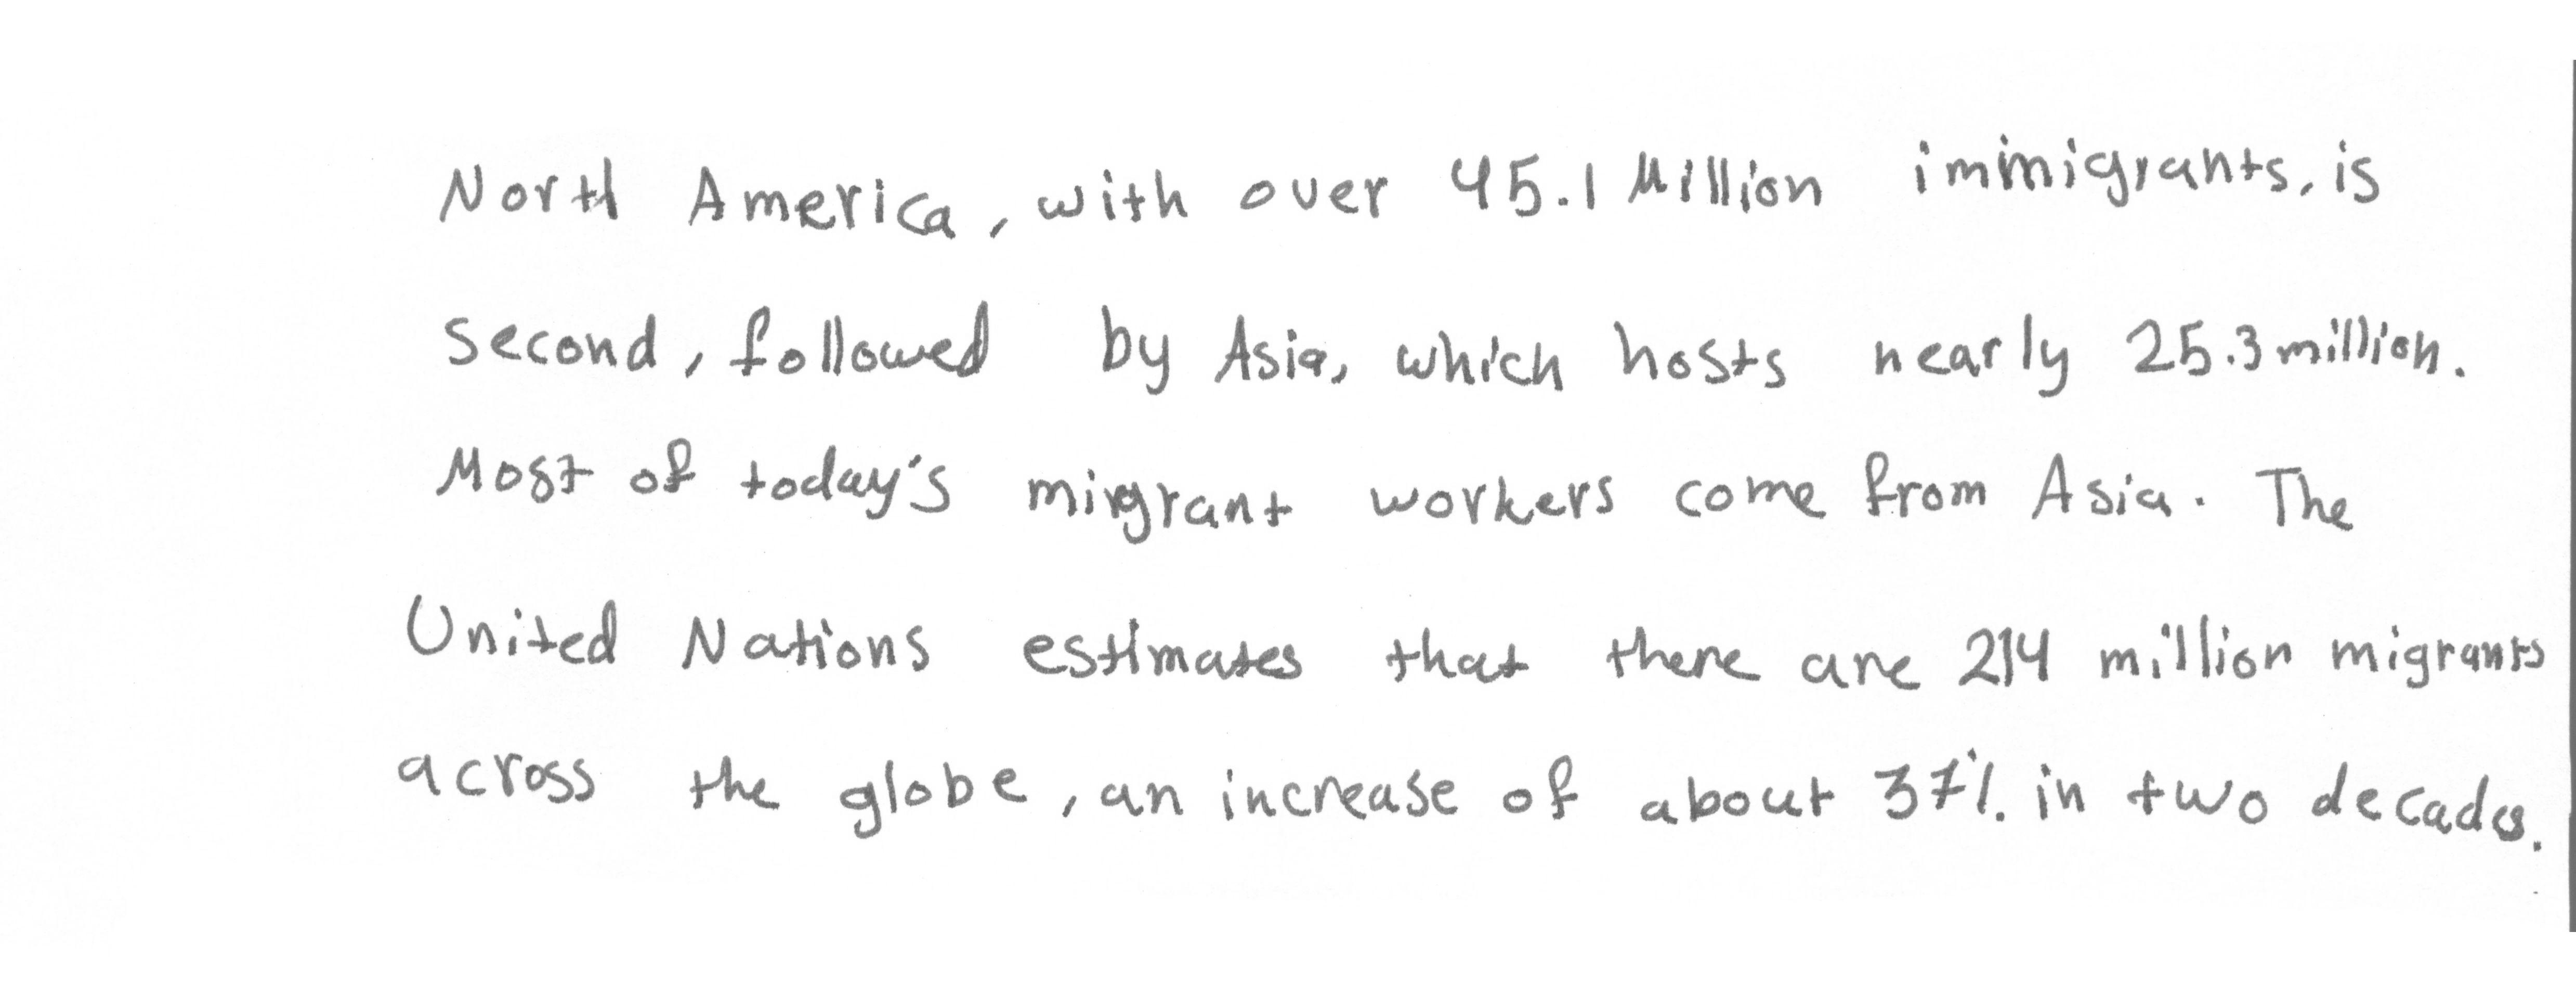 North America, with over 45.1 Million immigrants, is
second, followed by Asia, which hosts nearly 25.3 million.
Most of today's migrant workers come from Asia. The
United Nations estimates that there are 214 million migrants
across the globe, an increase of about 37% in two decades.